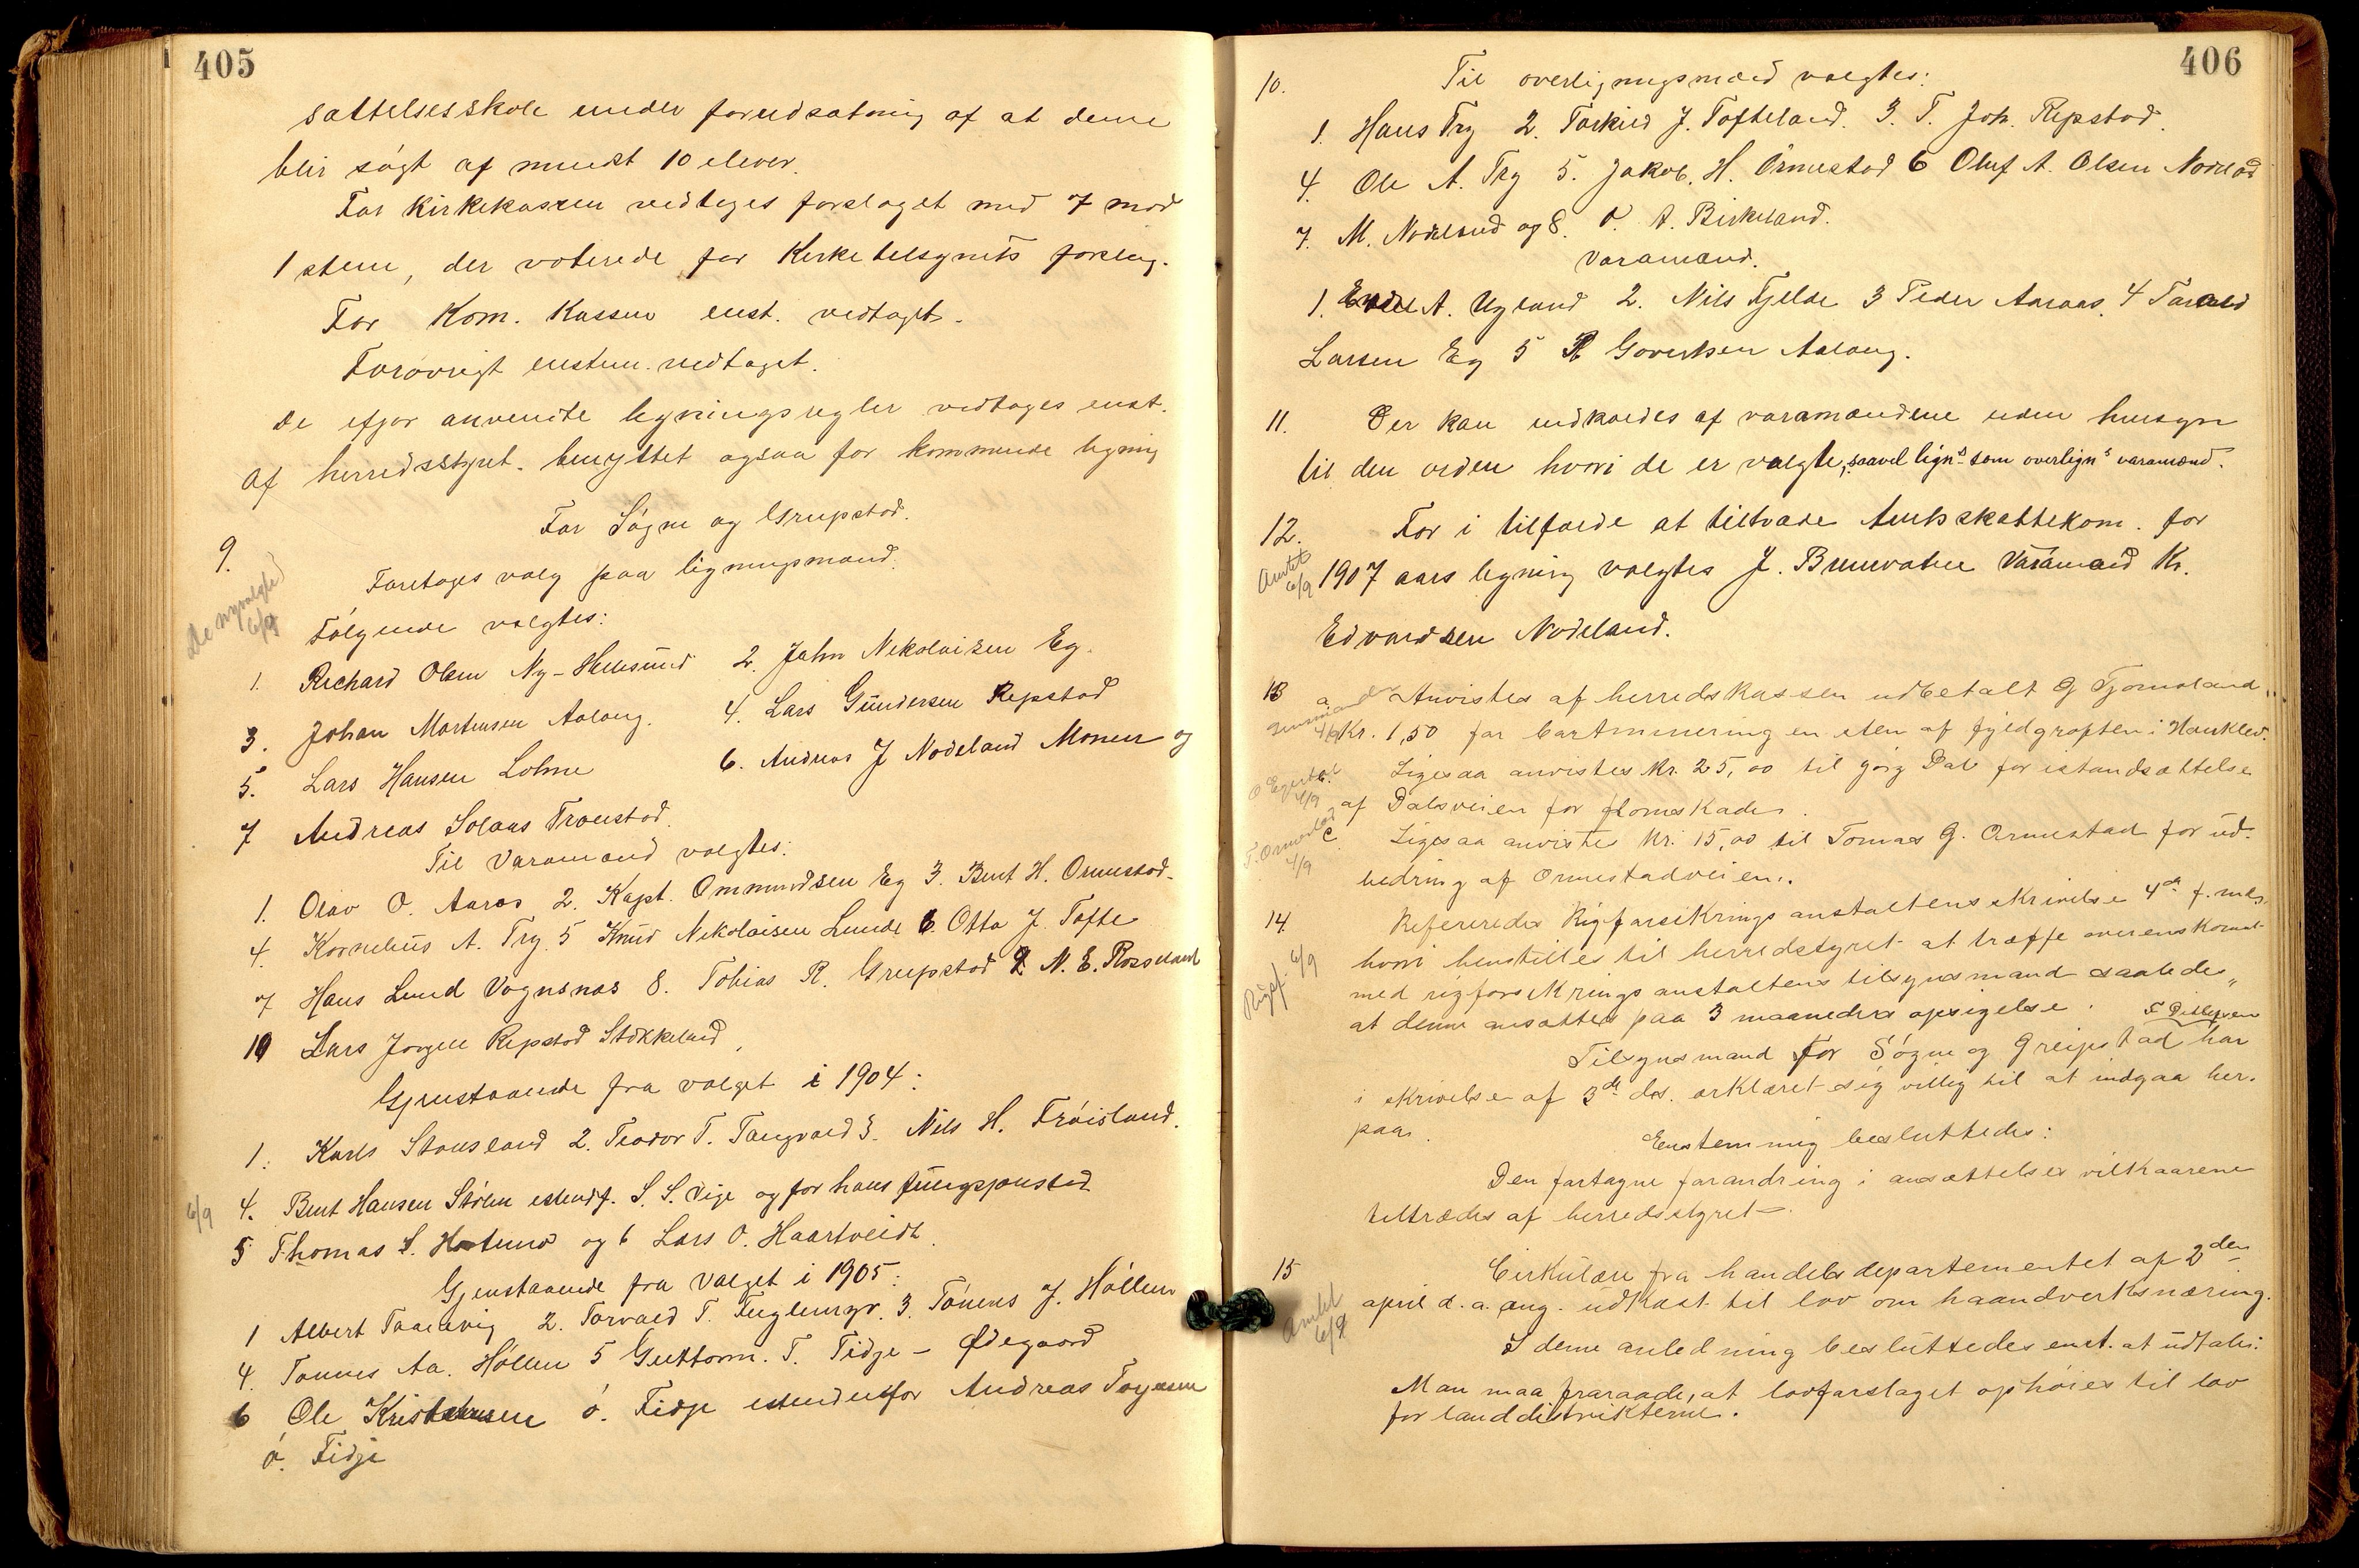 405
sættelsesskole under forudsætning af at denne
blir søgt af mindst 10 elever.
For kirkekassen vedtoges forslaget med 7 mod
1 stem, der voterede for Kirketilsynets forslag.
For Kom. Kassen enst. vedtaget.
Forøvrigt enstem. vedtaget.
De ifjor anvendte ligningsregler vedtoges enst.
af herredsstyret benyttet ogsaa for kommende ligning
For Søgne og Greipstad.
9.
Foretoges valg paa ligningsmænd.
de nyvalgte 6/9
Følgende valgtes:
1. Richard Olsen Ny-Hellesund 2. John Nikolaisen Eg.
3. Johan Mortensen Aalang. 4. Lars Gundersen Repstad
5. Lars Hansen Lohne 6. Andreas J Nodeland Monen og
7 Andreas Solaas Tronstad.
Til Varamænd valgtes:
1. Olav O. Aaros 2. Kapt. Ommundsen Eg 3. Bent H. Ormestad.
4. Kornelius A. Try. 5 Knud Nikolaisen Lunde 6. Otto J. Tofte
7 Hans Lund Vognsnæs 8. Tobias R. Greipstad 9. N. E. Rosseland
10 Lars Jørgen Repstad Stokkeland,
Gjenstaaende fra valget i 1904:
1. Karls Stausland 2. Teodor T. Tangvald 3. Nils H. Frøisland.
6/9
4. Bent Hansen Stølen istedf. S. S. Vige og for hans funksjonstid
5 Thomas S. Hortund og 6 Lars O. Haartveidt.
Gjenstaaende fra Valget i 1905:
1 Albert Taanevig 2. Torvald T. Fuglemyr. 3. Tønnes J. Høllen
4. Tønnes Aa. Høllen 5 Guttorm. T. Fidje - Ødegaard
6 Ole Kristensen ø. Fidje istedenfor Andreas Tygesen
ø. Fidje
406
10. Til overligningsmænd valgtes:
1. Hans Try 2. Torkild J. Tofteland. 3. T. Joh. Repstad.
4. Ole A. Try 5. Jakob. H. Ormestad 6 Oluf A. Olsen Nodeland
7. M. Nodeland og 8. O. A. Birkeland.
Varamænd.
1. Endel A. Ugland 2. Nils Fjelde 3 Peder Aaraas. 4 Tarald
Larsen Eg 5 R Govertsen Aalang.
11. Der kan indkaldes af varamændene uden hensyn
til den orden hvori de er valgte, saavel lign.s som overligns varamænd.
12. For i tilfælde at tiltræde Amtsskattekom. for
Amtet 6/9
1907 aars ligning valgtes J. Brunvatne Varamand Kr.
Edvardsen Nodeland.
13 a Anvistes af herredskassen udbetalt G Tjomsland
Kr. 1,50 for bortminering en sten af fjeldgrøften i Hanklev.
O Egestøl 4/9
b. Ligesaa anvistes Kr. 25,00 til Jørg Dal for istandsættelse
af Dalsveien for flomskade.
T. Ormestad 4/9
c. Ligesaa anvistes Kr. 15,00 til Tomas G. Ormestad for ud-
bedring af Ormestadveien.
14. Refereredes Rigsforsikringsanstaltens skrivelse 4de f. mds.
Rigsf. 6/9
hvori henstilles til herredstyret at træffe overenskomst
med rigsforsikringsanstaltens tilsynsmand saaledes,
at denne ansættes paa 3 maaneders opsigelse.
F Ditlefsen
Tilsynsmand for Søgne og Greipstad har
i skrivelse af 3de ds. erklæret sig villig til at indgaa her-
paa.
Enstemmig besluttedes:
Den fortagne forandring i ansættelses vilkaarene
tiltrædes af herredsstyret.
15 Cirkulære fra handelsdepartementet af 2den
Amtet 6/9
april d. a. ang. udkast til lov om haandverksnæring.
I denne anledning besluttedes enst. at udtale:
Man maa fraraade, at lovforslaget ophøies til lov
for landdistrikterne.